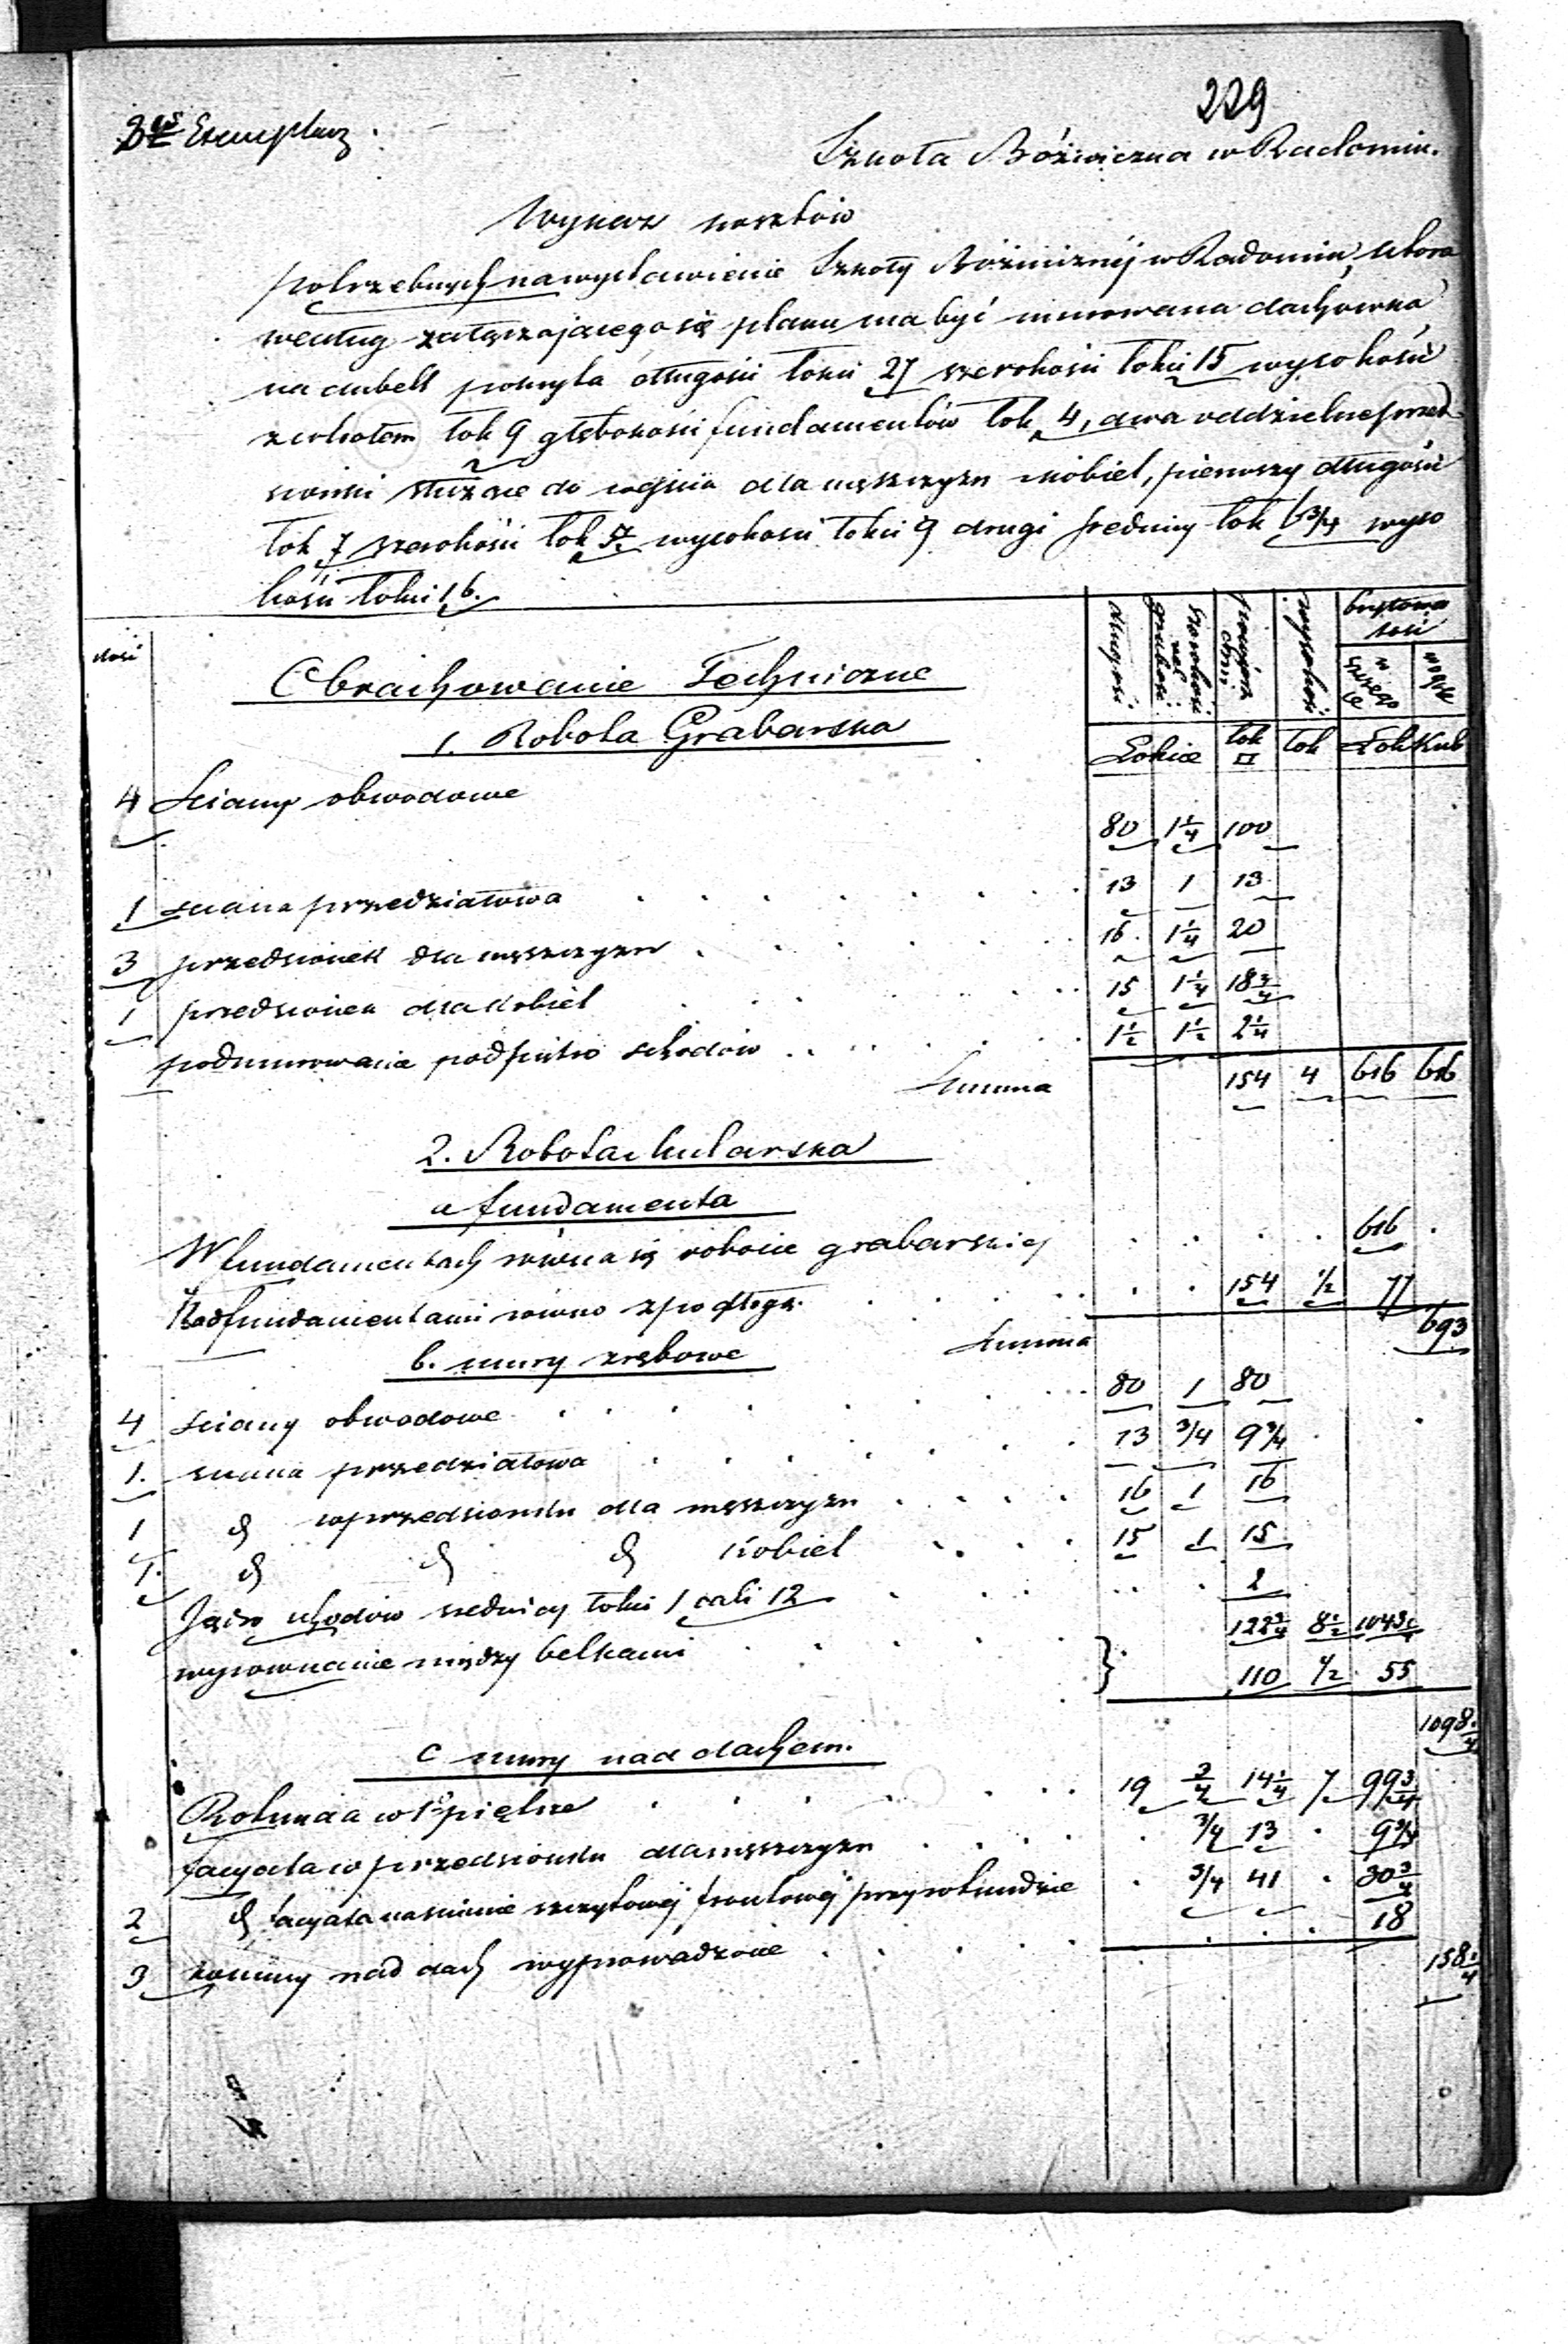 229
2gi Exemplarz.
Szkoła Bóżnicza w Radomiu.
Wykaz kosztów
potrzebnych na wystawienie Szkoły Bóżnicznéj w Radomiu, która
według załączającego się planu ma być murowana dachówką
na dubelt pokryta długości łokci 27 szerokości łokci 15 wysokości
z cokołem łok 9 głębokości fundamentów łok 4, dwa oddzielne przed
sionki służące do wejścia dla męszczyzn i kobiet, pierwszy długości
łok 7 szerokości łok wysokości łokci 9 drugi średnicy łok 6 3/4 wyso
kości łokci 16.
ilość
Obrachowanie Techniczne
długość
szerokość vel grubość
powierzchni
wysokość
kubiczna ilość
w szczególe
w ogóle
1. Robota Grabarska
Łokcie łok □ łok Łok Kub
4 Sciany obwodowe 80 1 1/4 100
1 sciana przedziałowa 13 1 13
3 przedsionek dla męszczyzn 16 1 1/4 20
1 przedsionek dla kobiet 15 1 1/4 18 3/4
podmurowanie pod schodów 1 1/2 1 1/2 2 1/4
Summa 154 4 616 616
2. Robota Mularska
a fundamenta
W fundamentach równa się robocie grabarskiej 616
Nad fundamentami równo z podłogą 154 1/2 77
Summa 693
b. mury zrębowe
4 sciany obwodowe 80 1 80
1. sciana przedziałowa 13 3/4 9 3/4
1 d w przedsionku dla męszczyzn 16 1 16
1. d d d Kobiet 15 1 15
Jądro schodów średnicy łokci 1 cali 12 2
122 3/4 8 1/2 1043 1/4
wyrównanie między belkami 110 1/2 55
1098 1/4
c mury nad dachem.
Rotunda w 1m piętrze 19 3/4 14 1/4 7 99 3/4
facyata w przedsionku dla męszczyzn 3/4 13 9 3/4
2 d facyata na scianie szczytowéj frontowéj przy rotundzie 3/4 41 30 3/4
3 kominy nad dach wyprowadzone 18
158 1/4